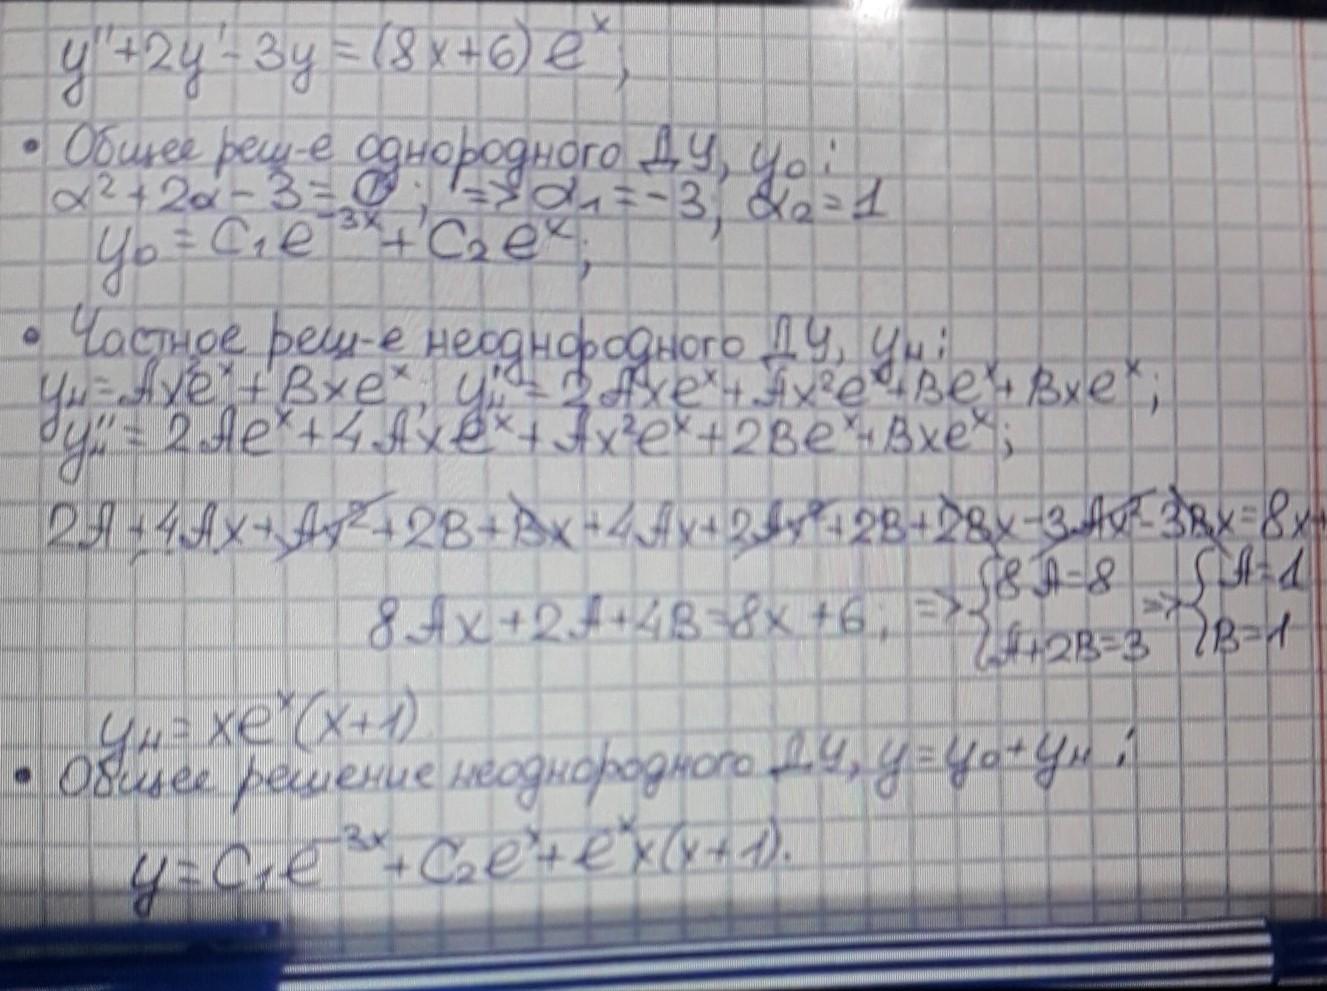 y''+2y'-3y=(8x+6)e^x;
• Общее реш-е однородного ДУ, y₀:
α²+2α-3=0; => α₁=-3; α₂=1
y₀=C₁e^{-3x}+C₂e^x;
• Частное реш-е неоднородного ДУ, yн:
yн=Axe^x+Bxe^x; yн'=2Axe^x+Ax²e^x+Be^x+Bxe^x;
yн''=2Ae^x+4Axe^x+Ax²e^x+2Be^x+Bxe^x;
2A+4Ax+Ax²+2B+Bx+4Ax+2Ax²+2B+2Bx-3Ax²-3Bx=8x+
8Ax+2A+4B=8x+6; => {8A=8 {A+2B=3 => {A=1 {B=1
yн=xe^x(x+1)
• Общее решение неоднородного ДУ, y=y₀+yн:
y=C₁e^{-3x}+C₂e^x+e^x x(x+1).